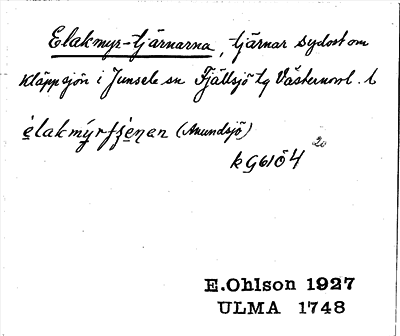 Elakmyr-tjärnarna, tjärnar sydost om
Kläppsjön i Junsele sn Fjällsjö tg Västernorrl. l
ẹlakmýrfȷ̣ẹṇaṇ (Anundsjö)
k G6104 20
E.Ohlson 1927
ULMA 1748